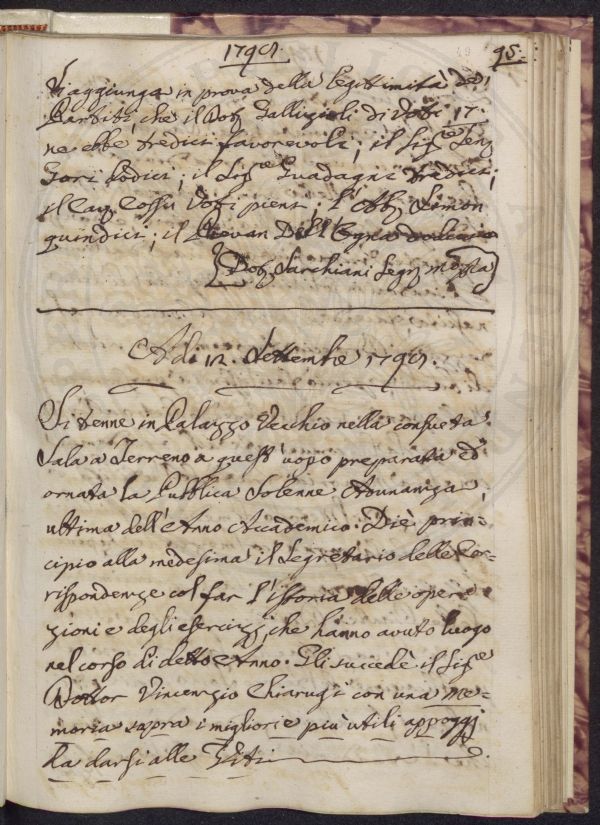 1790. 95.
Si aggiunga in prova della legittimità de'
Partiti, che il Dott. Gallizioli di Voti 17.
ne ebbe tredici favorevoli; il Sig.e
Gori dodici; il Sig.e Guadagni tredici;
il Cav. Cossu Voti pieni; l'Ab. Simon
quindici; il Piovan Dell'Ogna dodici
Dott. Sarchiani Seg.
A dì 12. Settembre 1790.
Si tenne in Palazzo Vecchio nella consueta
Sala a Terreno a quest'uopo preparata ed
ornata la Pubblica Solenne Adunanza,
ultima dell'Anno Accademico. Diè prin=
cipio alla medesima il Segretario delle Cor=
rispondenze col far l'istoria delle opera
zioni e degli esercizj, che hanno avuto luogo
nel corso di detto Anno. Gli succedè il Sig.e
Dottor Vincenzio Chiarugi con una me=
moria sopra i migliori e più utili appoggj
da darsi alle Viti